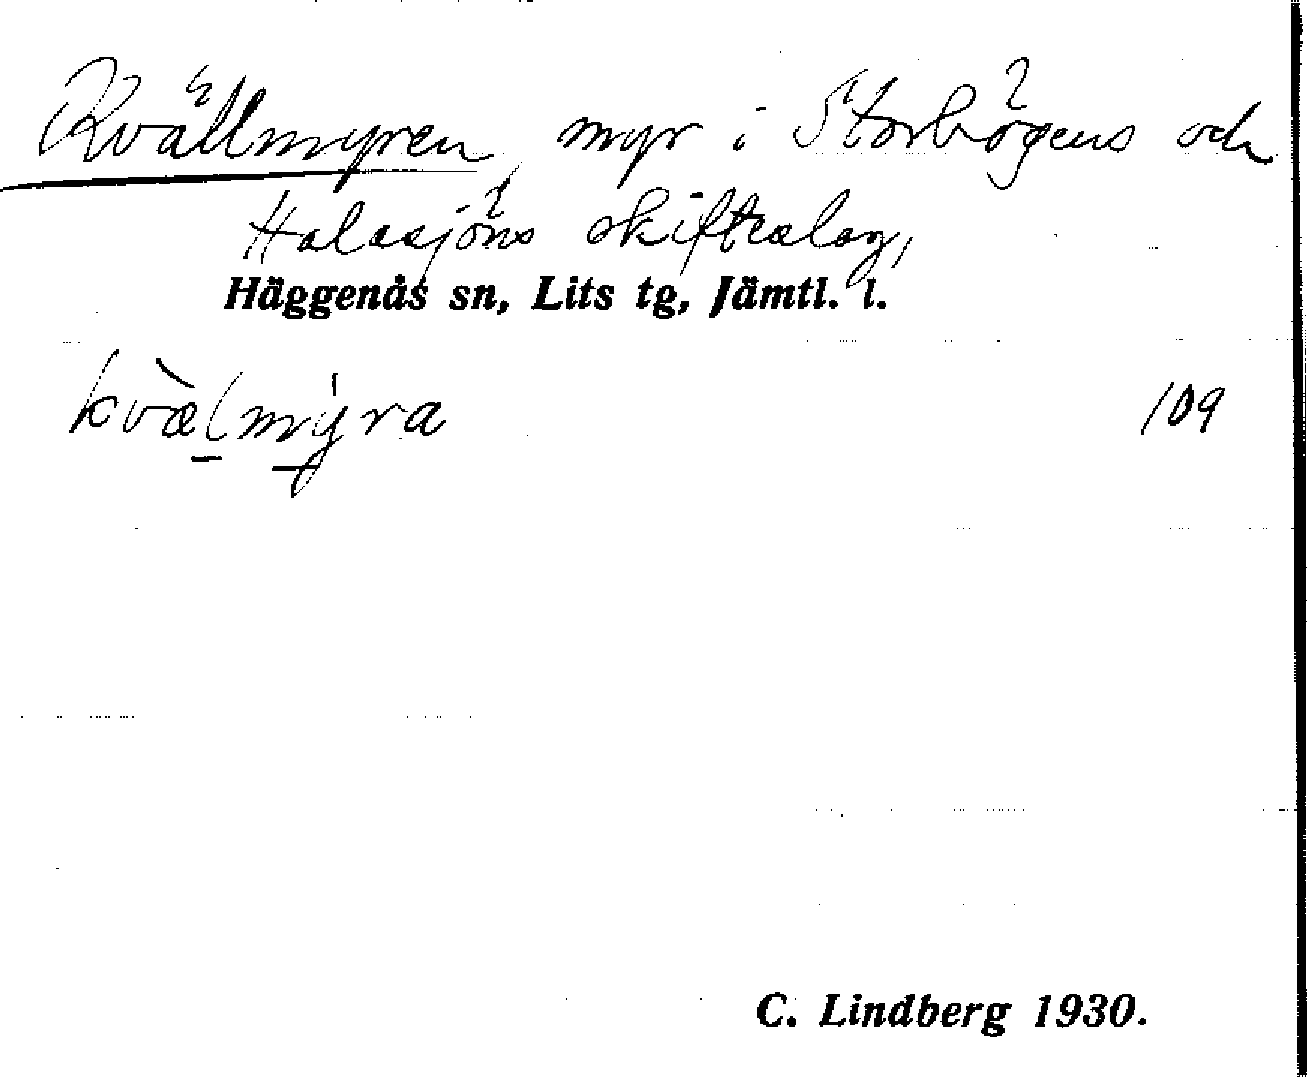 Kvällmyren, myr i Storhögens och
Halasjöns skifteslag,
Häggenås sn, Lits tg, Jämtl. l.
kvæ̀lmýra 109
C. Lindberg 1930.